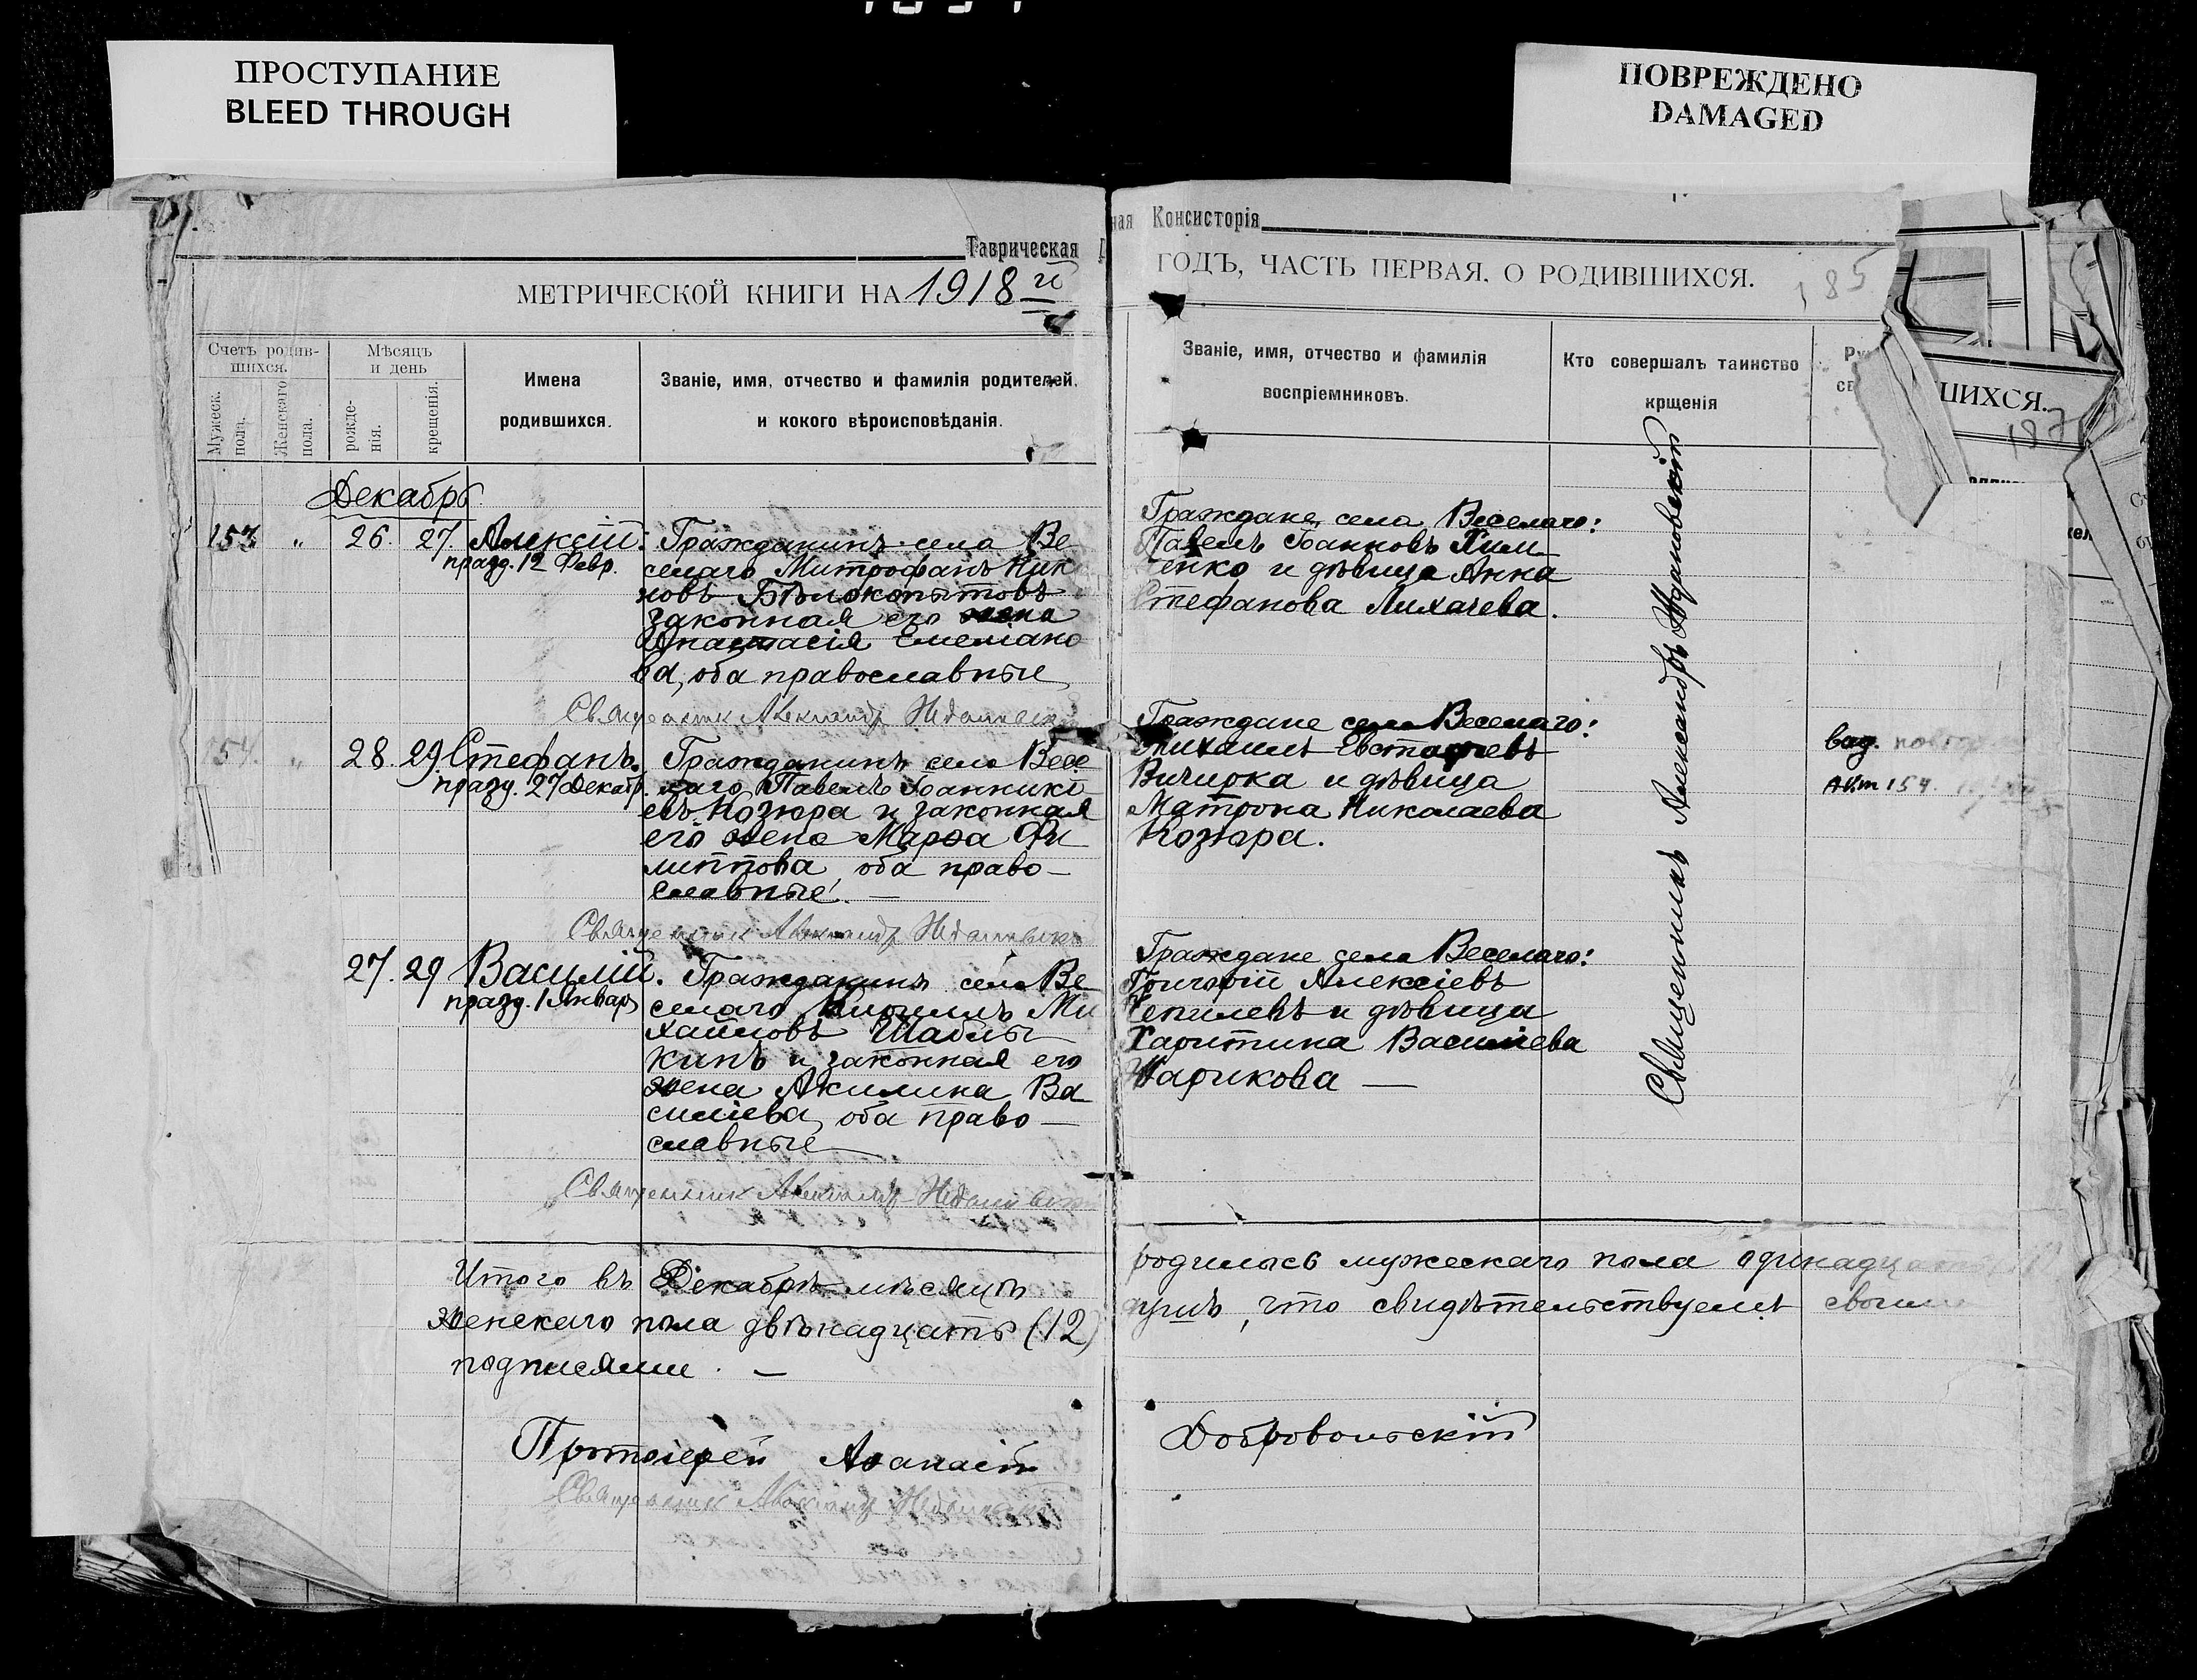 ПРОСТУПАНИЕ
BLEED THROUGH
ПОВРЕЖДЕНО
DAMAGED
Таврическая
ная Консисторія
МЕТРИЧЕСКОЙ КНИГИ НА 1918 й
ГОДЪ, ЧАСТЬ ПЕРВАЯ. О РОДИВШИХСЯ.
185
ШИХСЯ.
187
Счетъ родив-
шихся.
Мужеск. пола.
Женскаго пола.
Мѣсяцъ
и день
рожде-
нія.
крещенія.
Имена
родившихся.
Званіе, имя, отчество и фамилія родителей,
и кокого вѣроисповѣданія.
Званіе, имя, отчество и фамилія
воспріемниковъ.
Кто совершалъ таинство
крщенія
Декабрь
153 " 26. 27. Алексій.
празд. 12 Февр.
Гражданинъ села Ве
селаго Митрофанъ Ник
новъ Бѣлокопытовъ
законная его жена
Анастасія Емеліано
ва, оба православные
Священник Александр Ждановск
Граждане села Веселаго:
Павелъ Іоанновъ Хим
енко и дѣвица Анна
Стефанова Лихачева.
154. " 28. 29 Стефанъ.
празд. 27 Декабр.
Гражданинъ села Весе
лаго Павелъ Іоанникі
евъ Козюра и законная
его жена Марѳа Фи
липпова, оба право-
славные. —
Священник Александр Ждановск
Граждане села Веселаго:
Михаилъ Евстафіевъ
Вичирка и дѣвица
Матрона Николаева
Козюра.
вид.
Акт 154.
27. 29 Василій.
празд. 1 Январ
Гражданинъ села Ве
селаго Кириллъ Ми
хайловъ Шаблы
кинъ и законная его
жена Акилина Ва
силіева, оба право-
славные
Священник Александр Ждановск
Граждане села Веселаго:
Григорій Алексіевъ
Чепилевъ и дѣвица
Харитина Василіева
Жарикова —
Священникъ Александръ Ждановскій
Итого въ Декабрѣ мѣсяцѣ
родилось мужескаго пола одинадцать
женскаго пола двѣнадцать (12)
душъ, что свидѣтельствуемъ своими
подписями. —
Протоіерей Аѳанасій
Добровольскій
Священник Александр Ждановск